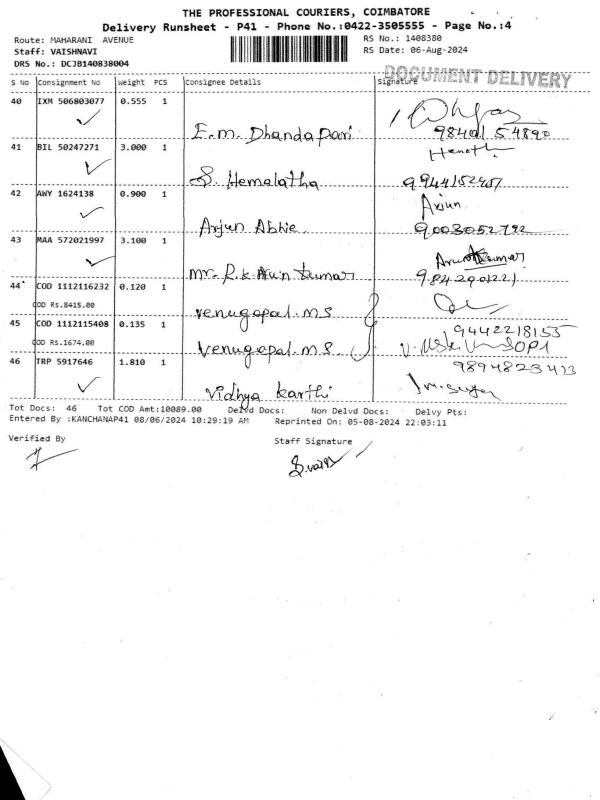 THE PROFESSIONAL COURIERS, COIMBATORE
Delivery Runsheet - P41 - Phone No.:0422-3505555 - Page No.:4
Route: MAHARANI AVENUE
RS No.: 1408380
Staff: VAISHNAVI
RS Date: 06-Aug-2024
DRS No.: DCJB140838004
DOCUMENT DELIVERY
S No Consignment No Weight PCS Consignee Details Signature
40 IXM 506803077 0.555 1
E.m. Dhandapani 98401 54890
41 BIL 50247271 3.000 1
S. Hemalatha 9944152457
42 AWY 1624138 0.900 1
Arjun
Arjun Abhie 9003052792
43 MAA 572021997 3.100 1
Arunkumar
mr. R.k Arun kumar 9842901221
44 COD 1112116232 0.120 1
COD Rs.8415.00
venugopal. m s
45 COD 1112115408 0.135 1
9442218155
COD Rs.1674.00
venugopal. m s
46 TRP 5917646 1.810 1
9894823413
vidhya karthi
Tot Docs: 46 Tot COD Amt:10089.00 Delvd Docs: Non Delvd Docs: Delvy Pts:
Entered By :KANCHANAP41 08/06/2024 10:29:19 AM Reprinted On: 05-08-2024 22:03:11
Verified By
Staff Signature